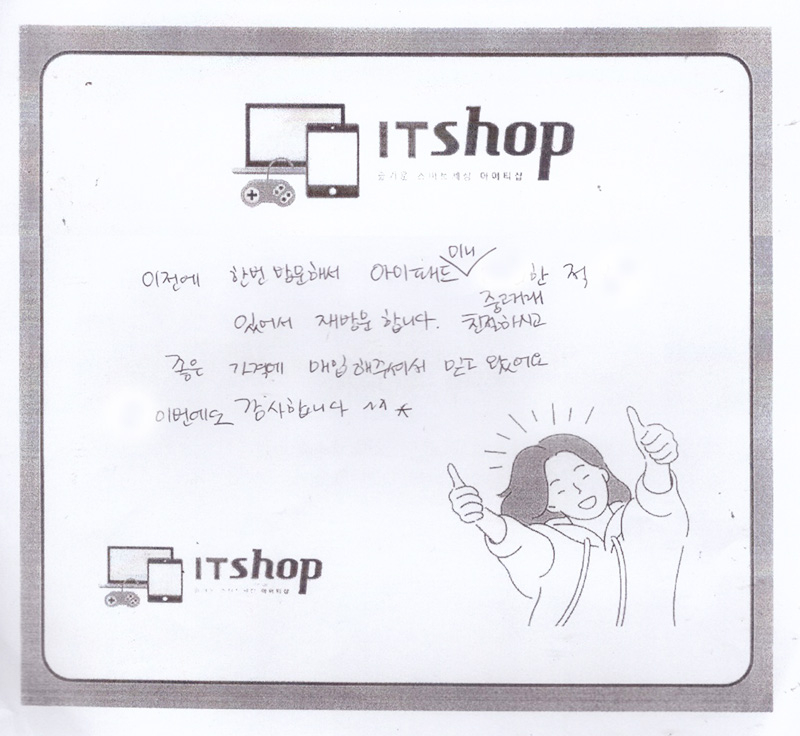 ITshop
즐거운 스마트세상 아이티샵
미니
이전에 한번 방문해서 아이패드 한 적
중고거래
있어서 재방문 합니다. 친절하시고
좋은 가격에 매입해주셔서 믿고 왔어요
이번에도 감사합니다 ^^*
ITshop
아이티샵